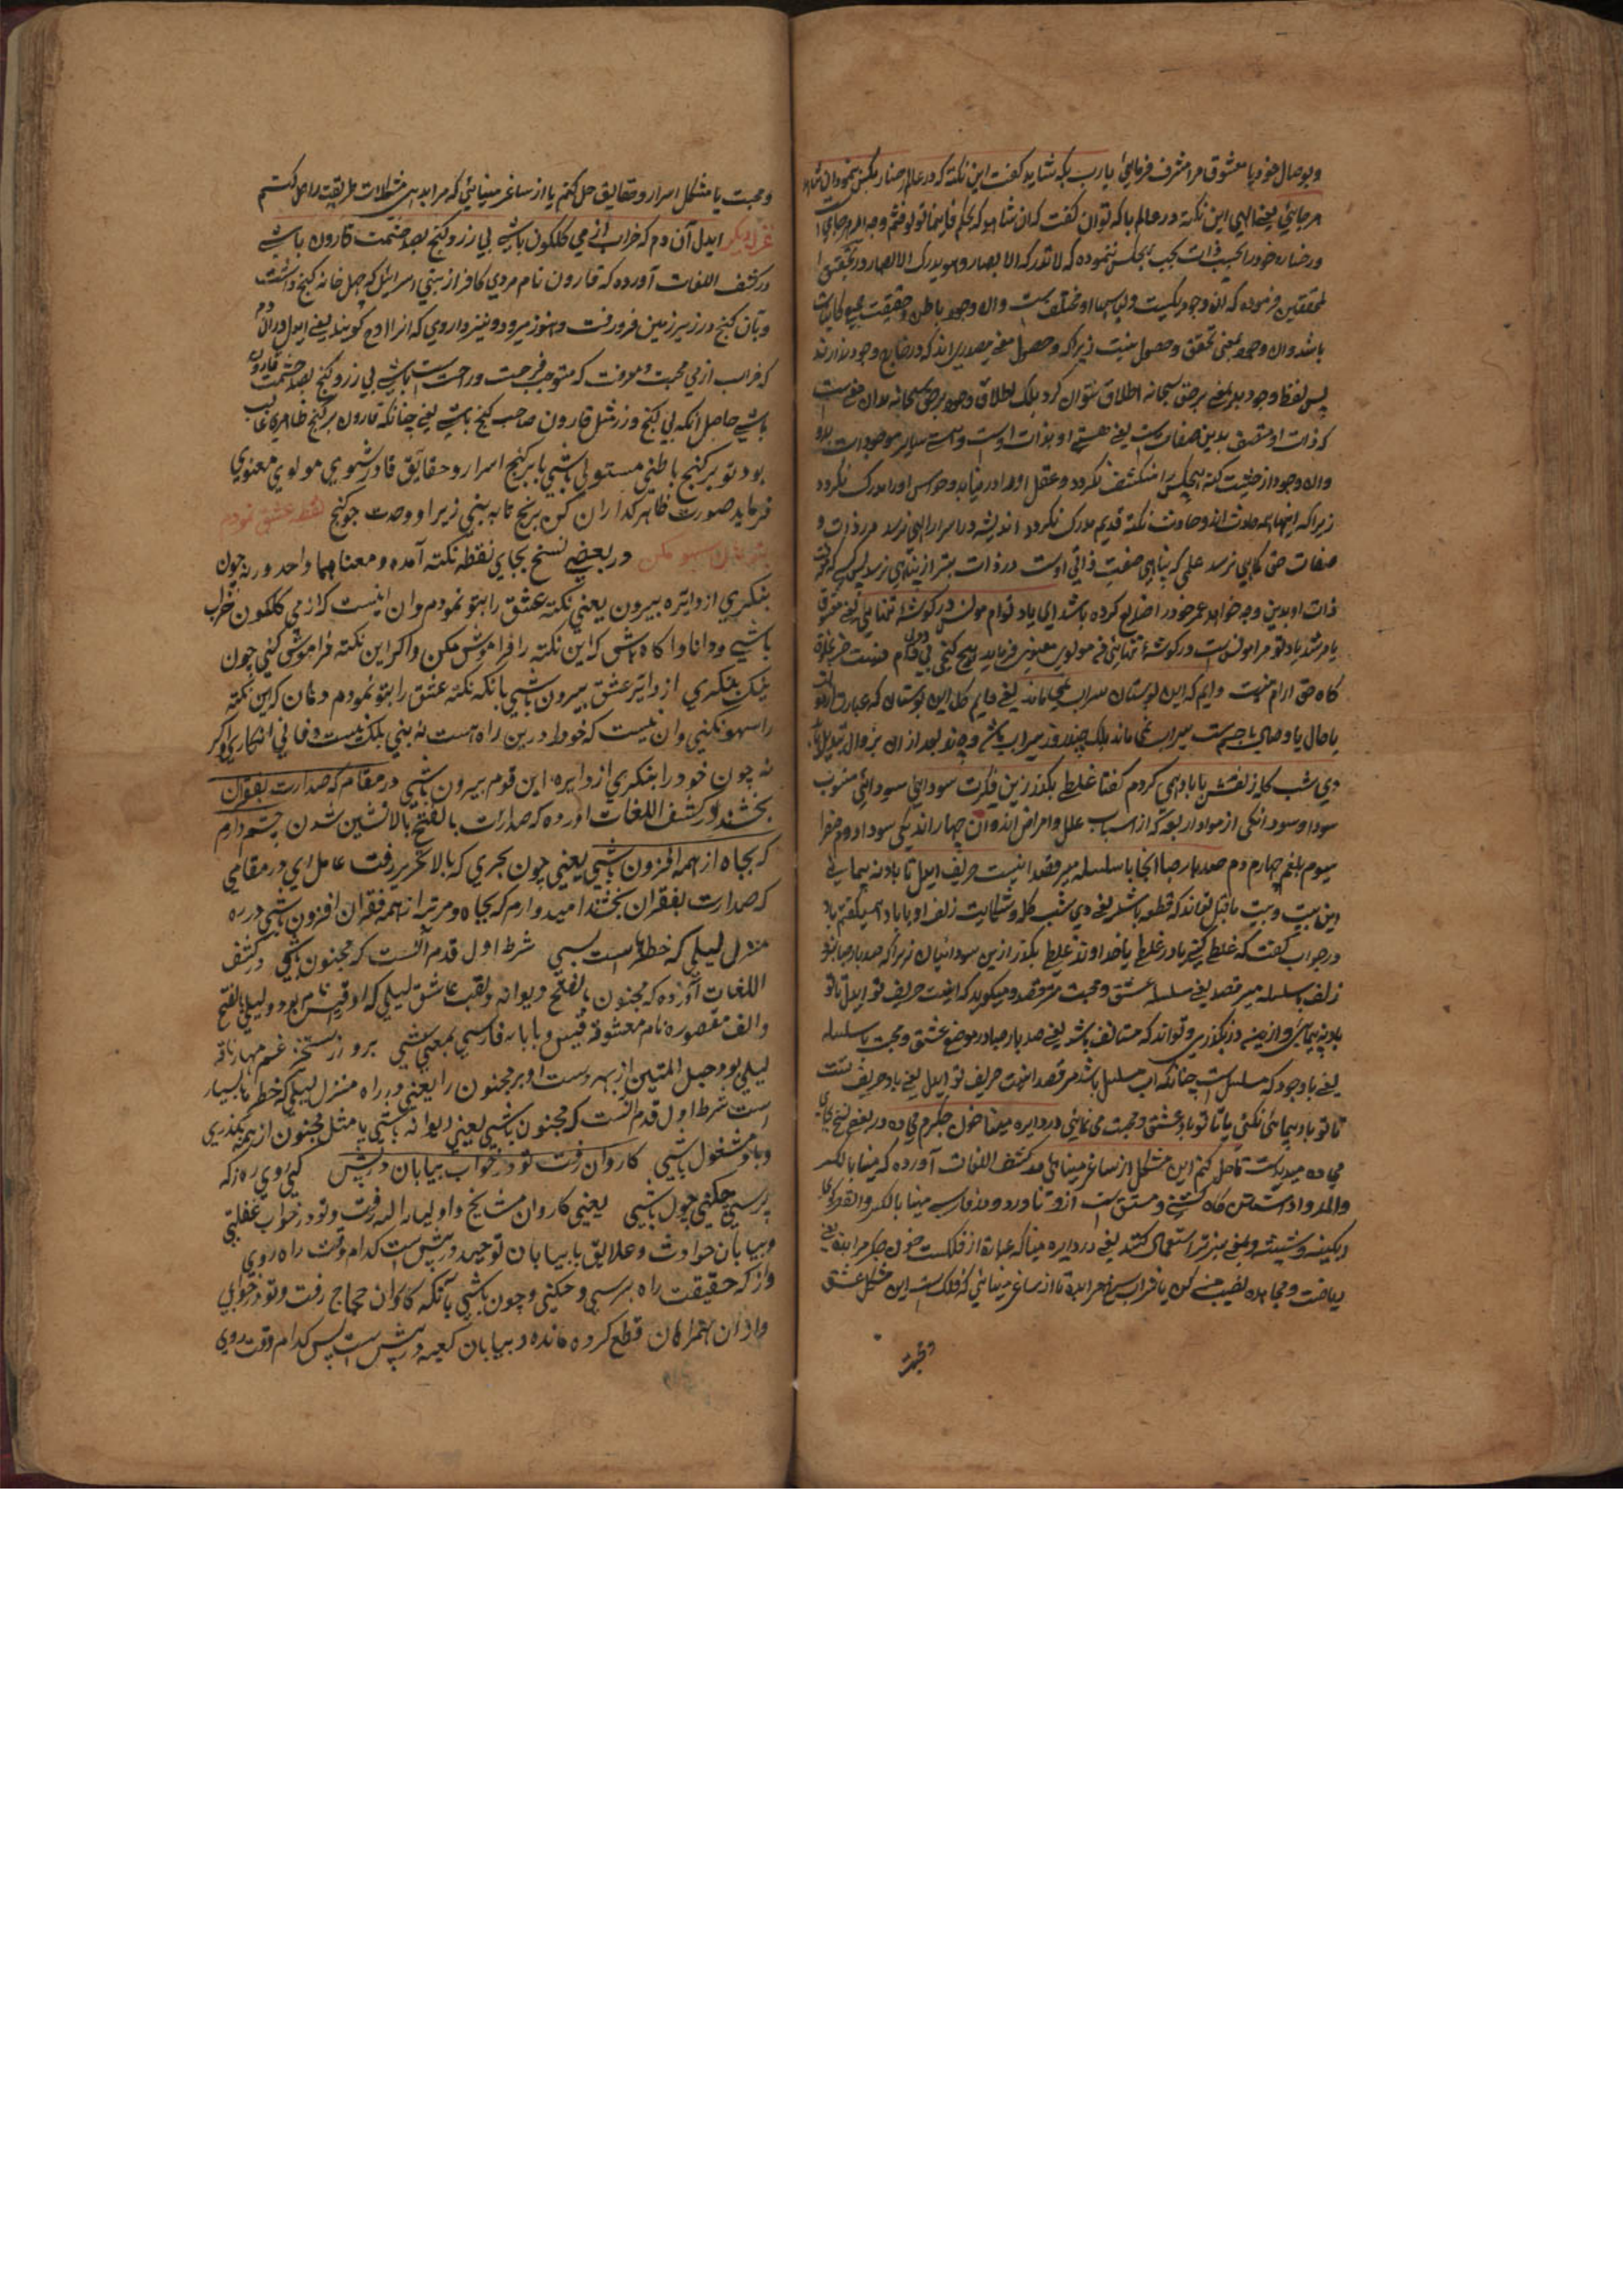 وبوصال خود یا معشوق مرا مشرف فرمایی یارب بکه شاید گفت این نکته که در عالم رخساره بکس ننمود آن شاهد
هرجایی یعنی الهی این نکته در عالم با که توان گفت که آن شاهد که بحکم فاینما تولوا فثم وجه الله هرجایی
و رخساره خود را بحسب ذات بهیچکس ننموده که لا تدرکه الابصار وهو یدرک الابصار و در تحقیق
محققین فرموده که آن وجود یکیست و لباسها او مختلف است وآن وجود باطن وحقیقت همه کاینات
باشد وآن وجود بمعنی تحقق وحصول نیست زیراکه وحصول معنی مصدری اند که در خارج وجود ندارند
پس لفظ وجود بدین معنی بر حق سبحانه اطلاق نتوان کرد بلکه اطلاق وجود بر حق سبحانه بدان معنیست
که ذات او متصف بدین صفات است یعنی هستی او بذات اوست وهستی سایر موجودات بدو
وآن وجود از حیثیت کنه بهیچکس منکشف نگردد وعقل او را در نیابد وحواس او را مدرک نگردد
زیراکه اینها همه حادث اند وحادث نکته قدیم مدرک نگردد اندیشه در اسرار الهی نرسد در ذات و
صفات حق کماهی نرسد علمی که تناهی صفت ذاتی اوست در ذات مبرا از تناهی نرسد پس کسیکه معرفت
ذات او بدین وجه خواهد عمر خود را ضایع کرده باشد ای یاد توام مونس در گوشهٔ تنهایی یعنی معشوق
یا مرشد یاد تو مرا مونس است در گوشهٔ تنهایی مولوی معنوی فرماید هیچ کنجی بی دد و بی دام نیست جز بخلوت
گاه حق آرام نیست دایم گل این بوستان سیراب نمیماند یعنی دایم گل این بوستان که عبارت از دنیا
یا جمال یا وصال یا جوانیست سیراب نمیماند بلکه چند روز سیراب باشد وچون بعد از آن بزوال تبدیل یابد
دی شب گله زلفش با باد همی کردم گفتا غلطی بگذر زین فکرت سودایی سودایی منسوب
سودا وسودا یکی از مواد اربعه که از اسباب علل وامراض اند وآن چهار اند یکی سودا دوم صفرا
سیوم بلغم چهارم دم صد باد صبا آنجا با سلسله میرقصد اینست حریف ایدل تا باد نپیمایی
این بیت وبیت ماقبل تواند که قطعه باشد یعنی دی شب گله وشکایت زلف او با باد همیکفتم باد
در جواب گفت که غلطی کنی یا در غلطی یا خداوند غلطی بگذر ازین سودائیان زیراکه صد باد صبا بزو
زلف با سلسله میرقصد یعنی سلسله عشق ومحبت میرقصد ومیگوید که اینست حریف تو ایدل تا تو
باد نپیمایی وازینمعنی در نگذری وتواند که مستأنف باشد یعنی صد باد صبا در موضع عشق ومحبت با سلسله
یعنی باوجود که مسلسل است چنانکه آب مسلسل باشد میرقصد اینست حریف تو ایدل یعنی باد حریف تست
تا تو باد پیمایی نکنی یا تا تو باد عشق ومحبت می نمایی در دایره مینا خون جگرم می ده در بعضی نسخ بجای
می ده میدیدست تا حل کنم این مشکل از ساغر مینایی در کشف اللغات آورده که مینا بالکسر
والمد
آبگینه وشیشه وبمعنی سبز نیز استعمال کنند یعنی در دایره مینا که عبارة از فلکست خون جگر مرا بده یعنی
ریاضت ومجاهده نصیب من کن یا شراب سرخ مرا بده تا از ساغر مینایی که فلک است این مشکل عشق
ومحبت
ومحبت یا مشکل اسرار وحقایق حل کنم یا از ساغر مینایی که مرا بدهی مشکلات طریقت را حل کنم
غزل دیگر ایدل آن دم که خراب از می گلگون باشی بی زر وگنج بصد حشمت قارون باشی
در کشف اللغات آورده که قارون نام مردی کافر از بنی اسرائیل که چهل خانه گنج داشت
وبآن گنج در زیر زمین فرو رفت وهنوز میرود ونیز داروی که آنرا ادم گویند یعنی ایدل در آن دم
که خراب از می محبت ومعرفت که مستوجب فرحت وراحت است باشی بی زر وگنج بصد حشمت قارون
باشی حاصل آنکه بی گنج وزر مثل قارون صاحب گنج باشی یعنی چنانکه قارون بر گنج ظاهری غالب
بود تو بر گنج باطنی مستولی باشی یا بر گنج اسرار وحقایق قادر شوی مولوی معنوی
فرماید صورت ظاهر گدازان کن برنج تا به بینی زیر او وحدت چو گنج نقطه عشق نمودم
بتو هان سهو مکن در بعضی نسخ بجای نقطه نکته آمده ومعناهما واحد ورنه چون
بنگری از دایره بیرون یعنی نکته عشق را بتو نمودم وآن اینست که از می گلگون خراب
باشی ودانا وآگاه باش که این نکته را فراموش مکن واگر این نکته فراموش کنی چون
نیک بنگری از دایره عشق بیرون باشی یا آنکه نکته عشق را بتو نمودم وهان که این نکته
را سهو نکنی وآن نیست که خود را درین راه هست نه بینی بلکه نیست وفانی انگاری واگر
نه چون خود را بنگری از دایره این قوم بیرون باشی در مقامی که صدارت بفقیران
بخشند در کشف اللغات آورده که صدارت بالفتح بالانشین شدن چشم دارم
که بجاه از همه افزون باشی یعنی چون بحری که بالا تحریر رفت عامل ای در مقامی
که صدارت بفقیران بخشند امیدوارم که بجاه ومرتبه از همه فقیران افزون باشی در ره
منزل لیلی که خطرهاست بسی شرط اول قدم آنست که مجنون باشی در کشف
اللغات آورده که مجنون بالفتح دیوانه ولقب عاشق لیلی که او قیس نام بود ولیلی بالفتح
والف مقصوره نام معشوقهٔ قیس وبا یاء فارسی بمعنی شبی برو از ستخر غم مهار ناقه
لیلی بود حبل المتین از بهر دست آویز مجنون را یعنی در راه منزل لیلی که خطرها بسیار
است شرط اول قدم آنست که مجنون باشی یعنی دیوانه باشی یا مثل مجنون از همه بگذری
وباو مشغول باشی کاروان رفت تو در خواب بیابان در پیش کی روی ره ز که
پرسی چکنی چون باشی یعنی کاروان مشایخ واولیاء الله رفت وتو در خواب غفلتی
وبیابان حوادث وعلایق یا بیابان توحید در پیش است کدام وقت راه روی
واز که حقیقت راه پرسی وچکنی وچون باشی یا آنکه کاروان حجاج رفت وتو در خوابی
واز آن همراهان قطع کرده مانده وبیابان کعبه در پیش است پس کدام وقت روی